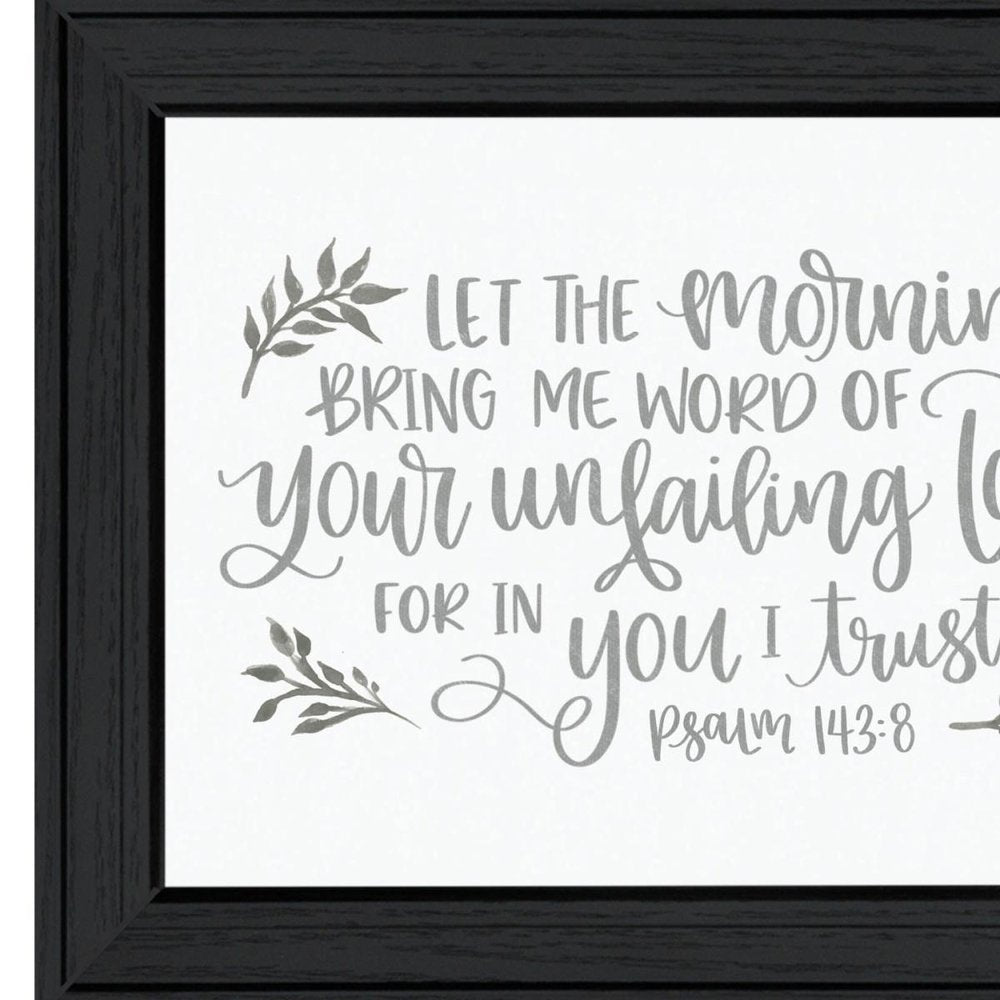 LET THE mornin
BRING ME WORD OF
your unfailing lo
FOR IN you I trust
Psalm 143:8